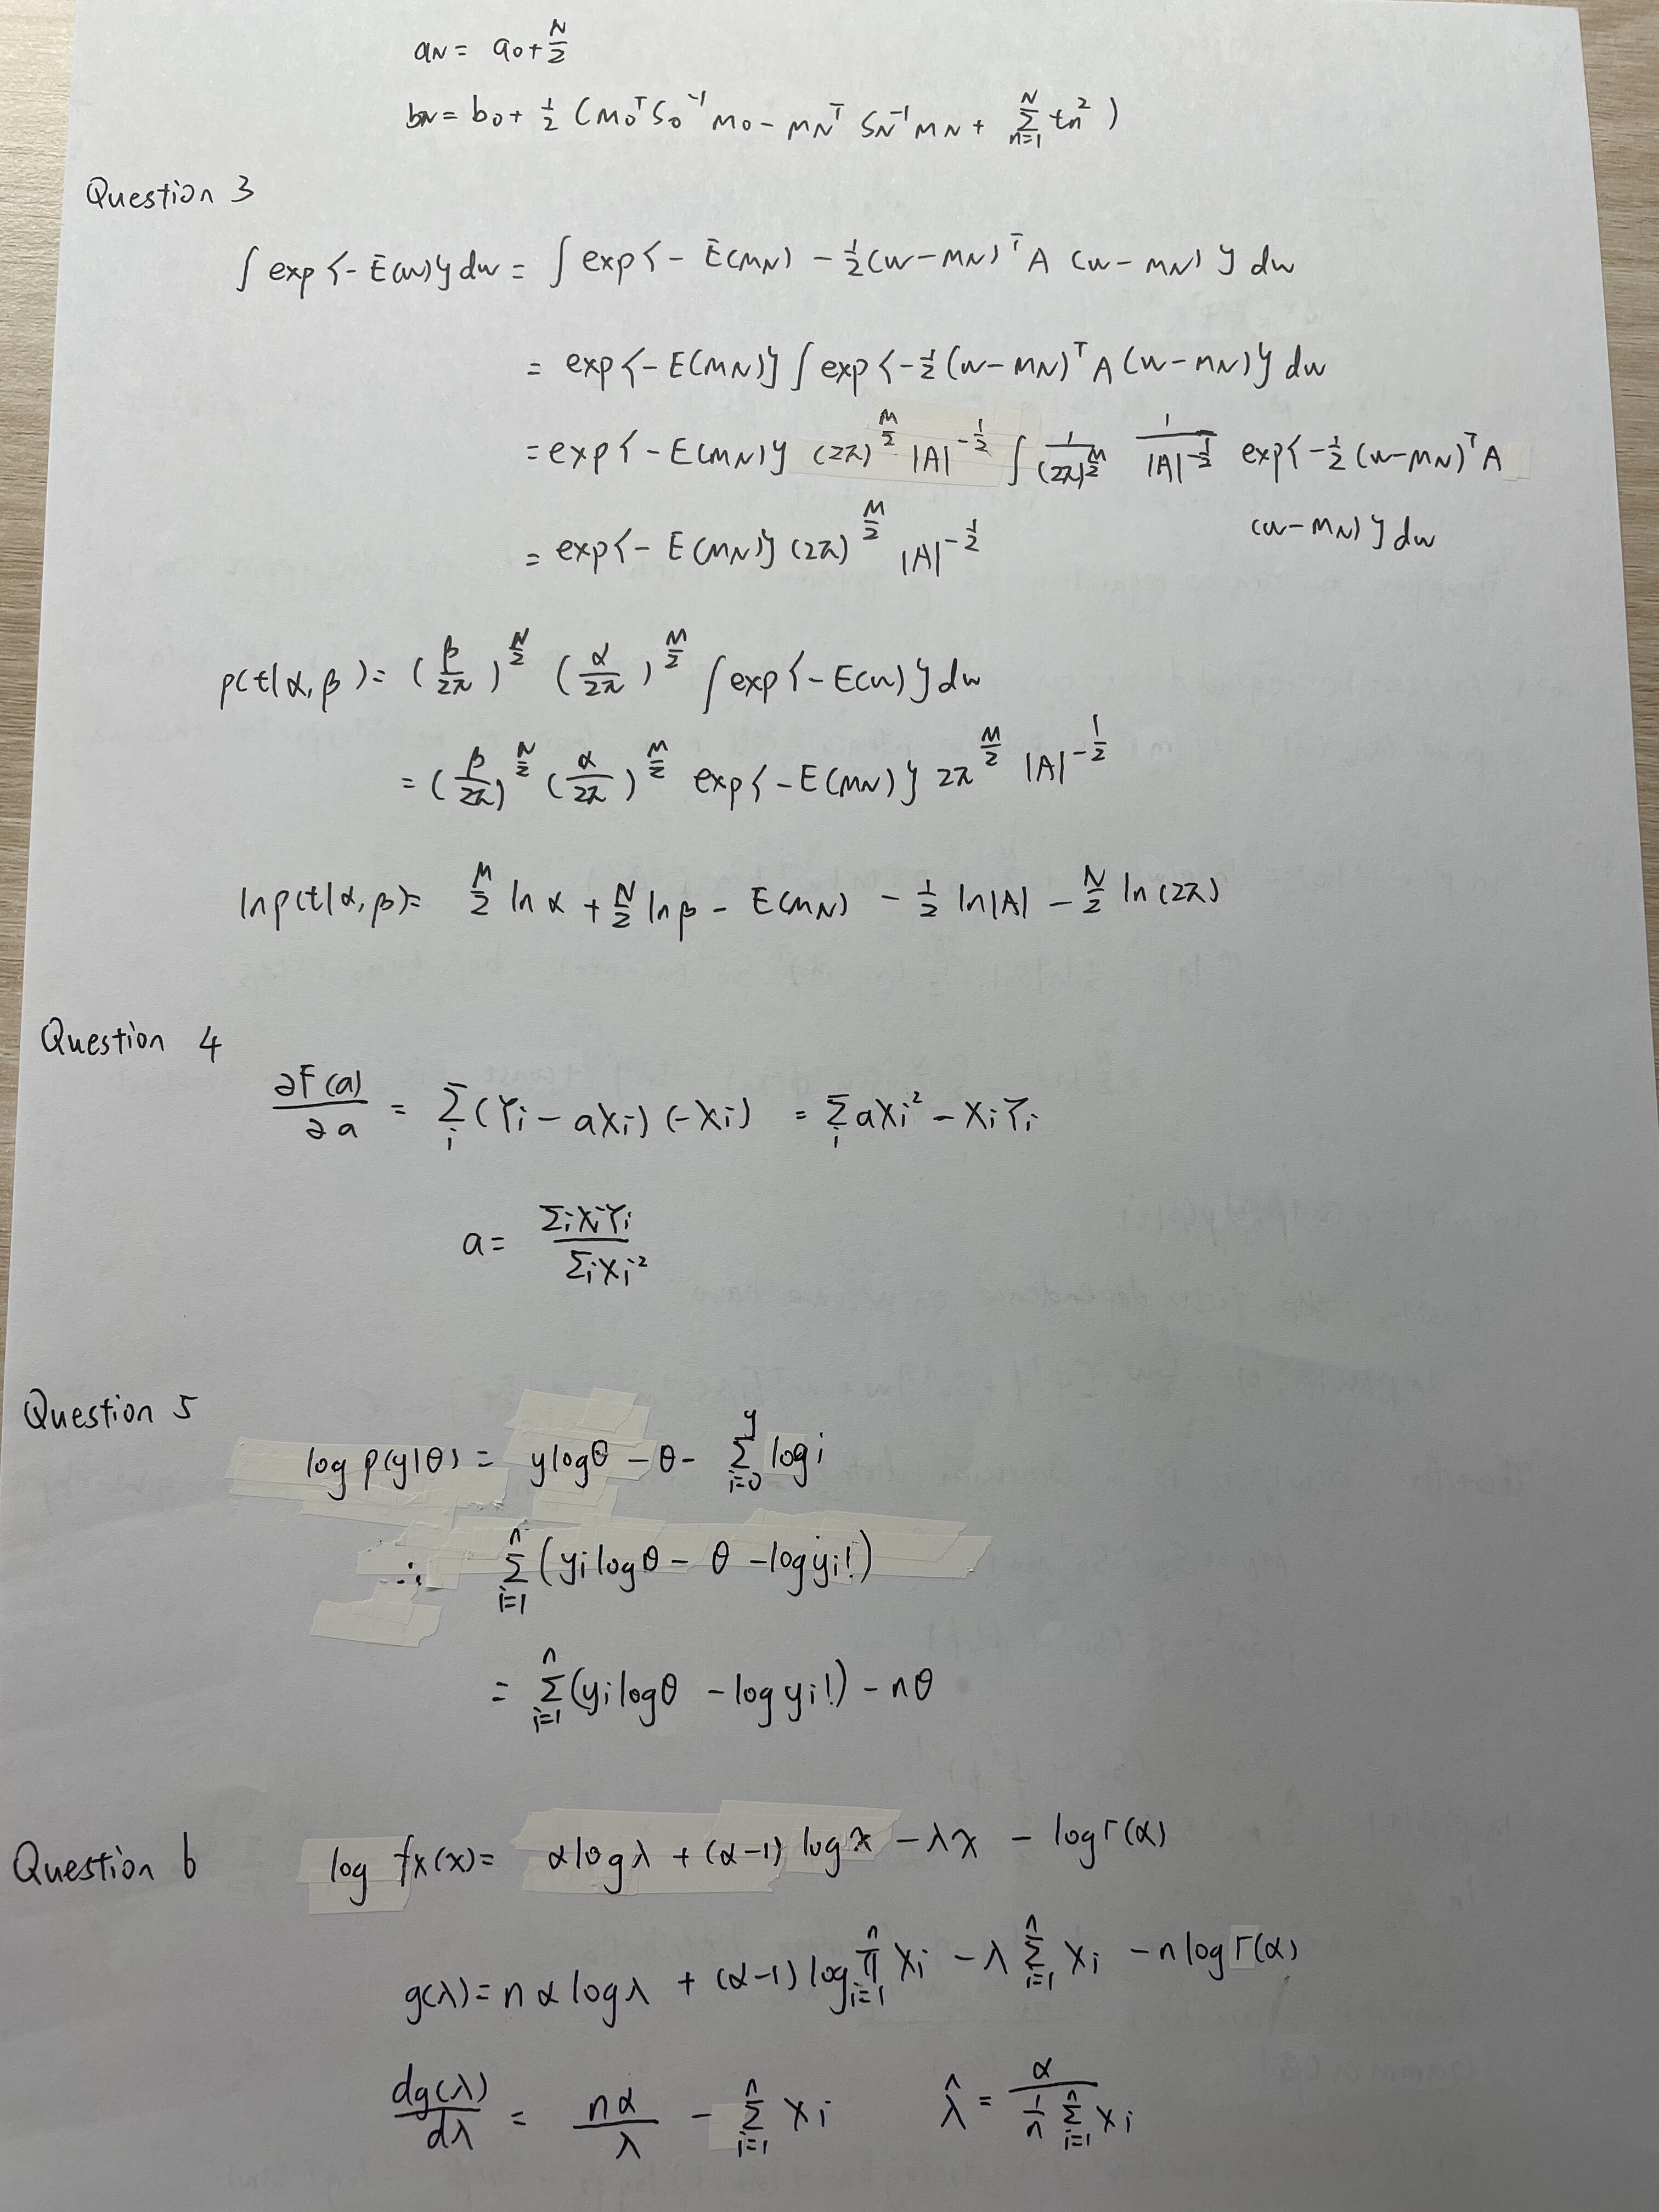 aN = a0 + N/2
bN = b0 + 1/2 (m0^T S0^-1 m0 - mN^T SN^-1 mN + Σ_{n=1}^{N} tn^2)
Question 3
∫ exp{-E(w)} dw = ∫ exp{-E(mN) - 1/2 (w-mN)^T A (w-mN)} dw
= exp{-E(mN)} ∫ exp{-1/2 (w-mN)^T A (w-mN)} dw
= exp{-E(mN)} (2π)^{M/2} |A|^{-1/2} ∫ 1/(2π)^{M/2} 1/|A|^{-1/2} exp{-1/2 (w-mN)^T A
(w-mN)} dw
= exp{-E(mN)} (2π)^{M/2} |A|^{-1/2}
p(t|α,β) = (β/2π)^{N/2} (α/2π)^{M/2} ∫ exp{-E(w)} dw
= (β/2π)^{N/2} (α/2π)^{M/2} exp{-E(mN)} 2π^{M/2} |A|^{-1/2}
ln p(t|α,β) = M/2 ln α + N/2 ln β - E(mN) - 1/2 ln|A| - N/2 ln(2π)
Question 4
∂F(a)/∂a = Σ_i (Yi - aXi)(-Xi) = Σ_i aXi^2 - XiYi
a = Σi XiYi / Σi Xi^2
Question 5
log p(y|θ) = y log θ - θ - Σ_{i=0}^{y} log i
∴ Σ_{i=1}^{n} (yi log θ - θ - log yi!)
= Σ_{i=1}^{n} (yi log θ - log yi!) - nθ
Question 6
log fx(x) = α log λ + (α-1) log x - λx - log Γ(α)
g(λ) = n α log λ + (α-1) log Π_{i=1}^{n} Xi - λ Σ_{i=1}^{n} Xi - n log Γ(α)
dg(λ)/dλ = nα/λ - Σ_{i=1}^{n} Xi λ̂ = α / (1/n Σ_{i=1}^{n} Xi)